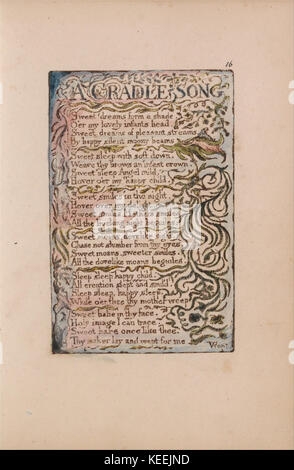 16
A CRADLE SONG
Sweet dreams form a shade
O'er my lovely infants head
Sweet dreams of pleasant streams
By happy silent moony beams
Sweet sleep with soft down
Weave thy brows an infant crown
Sweet sleep Angel mild
Hover o'er my happy child
Sweet smiles in the night
Hover over my
Sweet smiles
All the livelong night
Sweet moans
Chase not slumber from thy eyes
Sweet moans, sweeter smiles
All the dovelike moans beguiles
Sleep sleep happy child
All creation slept and smil'd
Sleep sleep, happy sleep
While o'er thee thy mother weep
Sweet babe in thy face
Holy image I can trace
Sweet babe once like thee
Thy maker lay and wept for me
Wept